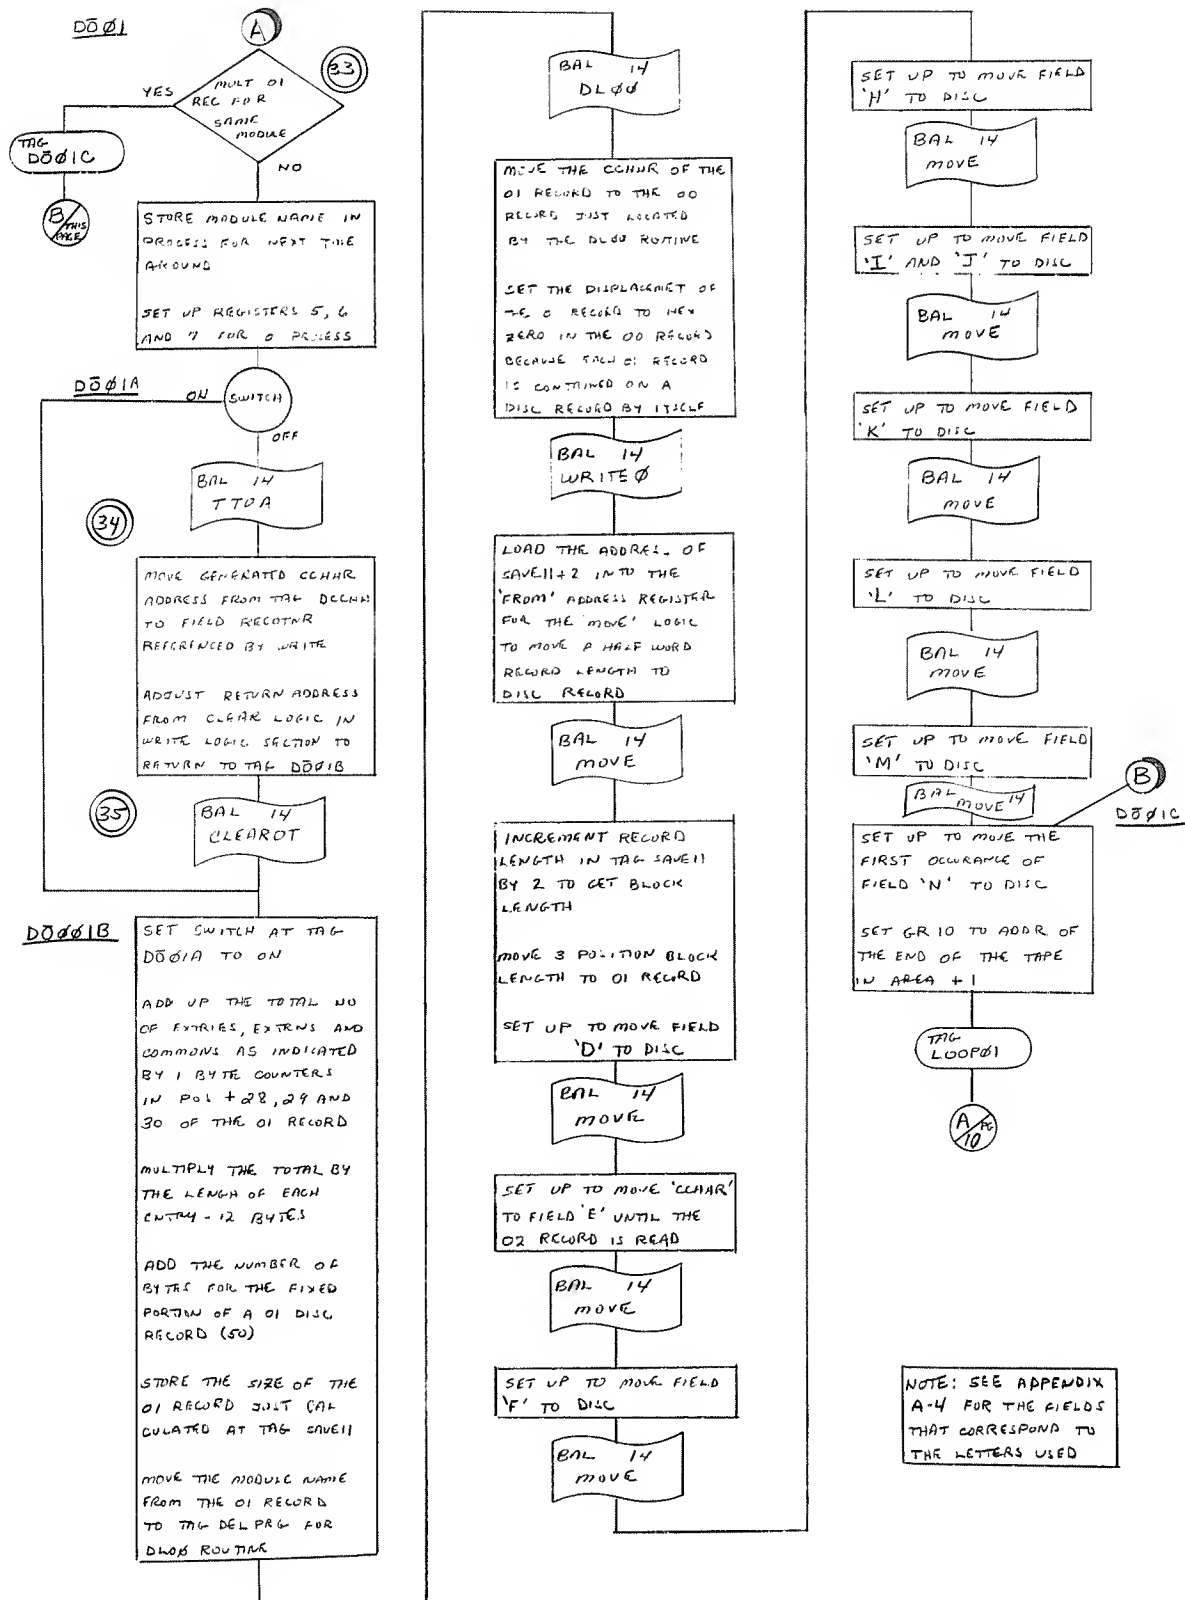 DŌØ1
A
33
YES
MULT 01
REC FOR
SAME
MODULE
NO
TAG
DŌØ1C
B/THIS
PAGE
STORE MODULE NAME IN
PROCESS FOR NEXT TIME
AROUND
SET UP REGISTERS 5, 6
AND 7 FOR 0 PROCESS
DŌØ1A
ON
SWITCH
OFF
BAL 14
TTOA
34
MOVE GENERATED CCHHR
ADDRESS FROM TAG DCCHH
TO FIELD RECOTNR
REFERENCED BY WRITE
ADJUST RETURN ADDRESS
FROM CLEAR LOGIC IN
WRITE LOGIC SECTION TO
RETURN TO TAG DŌØ1B
35
BAL 14
CLEAROT
DŌØØ1B
SET SWITCH AT TAG
DŌØ1A TO ON
ADD UP THE TOTAL NO
OF EXTRIES, EXTRNS AND
COMMONS AS INDICATED
BY 1 BYTE COUNTERS
IN POS +28, 29 AND
30 OF THE 01 RECORD
MULTIPLY THE TOTAL BY
THE LENGH OF EACH
ENTRY - 12 BYTES
ADD THE NUMBER OF
BYTES FOR THE FIXED
PORTION OF A 01 DISC
RECORD (50)
STORE THE SIZE OF THE
01 RECORD JUST CAL
CULATED AT TAG SAVE11
MOVE THE MODULE NAME
FROM THE 01 RECORD
TO TAG DELPRG FOR
DLOØ ROUTINE
BAL 14
DLØØ
MOVE THE CCHHR OF THE
01 RECORD TO THE 00
RECORD JUST LOCATED
BY THE DL00 ROUTINE
SET THE DISPLACEMET OF
THE 0 RECORD TO HEX
ZERO IN THE 00 RECORD
BECAUSE EACH 01 RECORD
IS CONTAINED ON A
DISC RECORD BY ITSELF
BAL 14
WRITEØ
LOAD THE ADDRES. OF
SAVE11+2 INTO THE
'FROM' ADDRESS REGISTER
FOR THE 'MOVE' LOGIC
TO MOVE A HALF WORD
RECORD LENGTH TO
DISC RECORD
BAL 14
MOVE
INCREMENT RECORD
LENGTH IN TAG SAVE11
BY 2 TO GET BLOCK
LENGTH
MOVE 3 POSITION BLOCK
LENGTH TO 01 RECORD
SET UP TO MOVE FIELD
'D' TO DISC
BAL 14
MOVE
SET UP TO MOVE 'CCHHR'
TO FIELD 'E' UNTIL THE
02 RECORD IS READ
BAL 14
MOVE
SET UP TO MOVE FIELD
'F' TO DISC
BAL 14
MOVE
SET UP TO MOVE FIELD
'H' TO DISC
BAL 14
MOVE
SET UP TO MOVE FIELD
'I' AND 'J' TO DISC
BAL 14
MOVE
SET UP TO MOVE FIELD
'K' TO DISC
BAL 14
MOVE
SET UP TO MOVE FIELD
'L' TO DISC
BAL 14
MOVE
SET UP TO MOVE FIELD
'M' TO DISC
BAL 14
MOVE
B
DŌØ1C
SET UP TO MOVE THE
FIRST OCCURANCE OF
FIELD 'N' TO DISC
SET GR 10 TO ADDR OF
THE END OF THE TAPE
IN AREA + 1
TAG
LOOPØ1
A/PG
10
NOTE: SEE APPENDIX
A-4 FOR THE FIELDS
THAT CORRESPOND TO
THE LETTERS USED